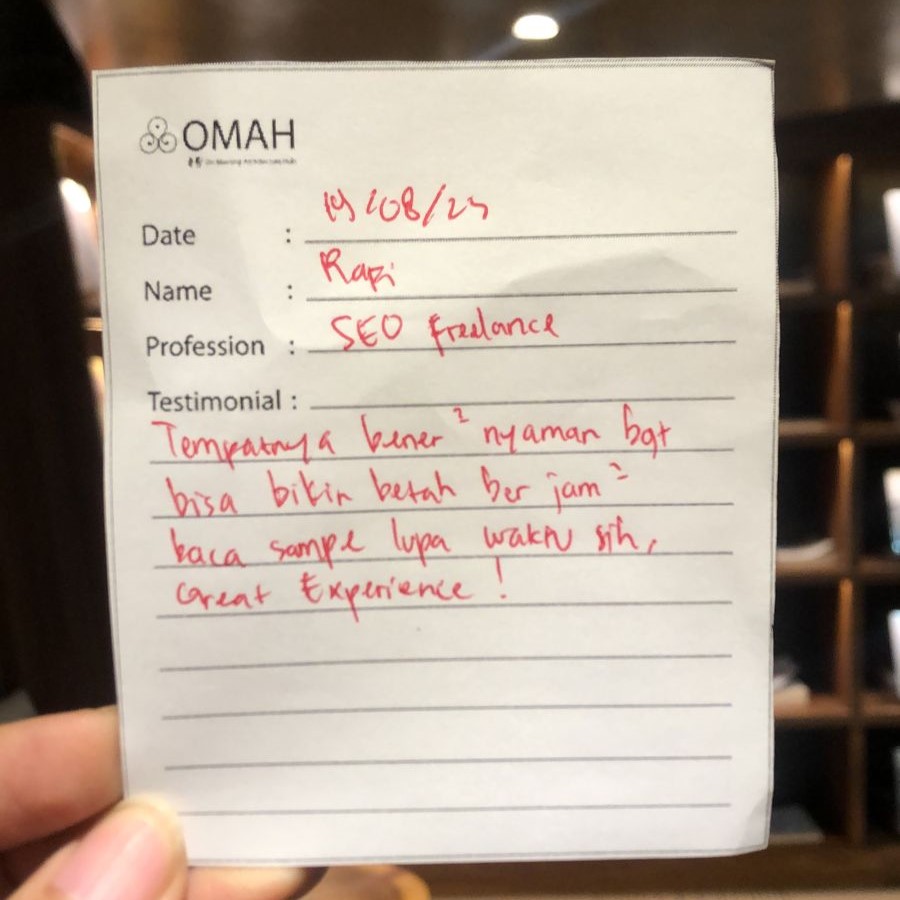 OMAH
Date : 19/08/23
Name : Rapi
Profession : SEO freelance
Testimonial :
Tempatnya bener² nyaman bgt
bisa bikin betah ber jam²
baca sampe lupa waktu sih,
Great Experience!